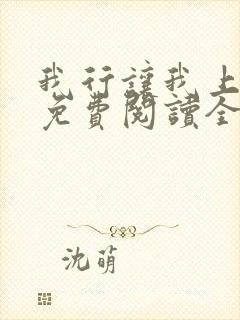 我行讓我上
免費閱讀全
沈萌